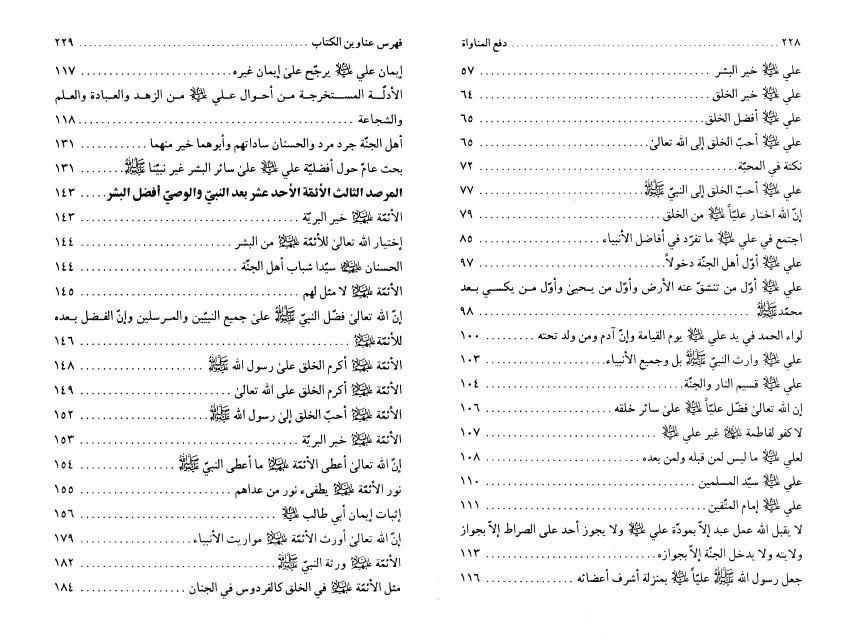 ٢٢٨ ........ دفع المناواة
علي ﷷ خير البشر ........ ٥٧
علي ﷷ خير الخلق ........ ٦٤
علي ﷷ أفضل الخلق ........ ٦٥
علي ﷷ أحبّ الخلق إلى الله تعالىٰ ........ ٦٥
نكتة في المحبّة ........ ٧٢
علي ﷷ أحبّ الخلق إلى النبيّ ﷺ ........ ٧٧
إنّ الله اختار عليّاً ﷷ من الخلق ........ ٧٩
اجتمع في علي ﷷ ما تفرّد في أفاضل الأنبياء ........ ٨٥
علي ﷷ أوّل أهل الجنّة دخولاً ........ ٩٧
علي ﷷ أوّل من تنشقّ عنه الأرض وأوّل من يحيىٰ وأوّل من يكسي بعد
محمّد ﷺ ........ ٩٨
لواء الحمد في يد علي ﷷ يوم القيامة وإنّ آدم ومن ولد تحته ........ ١٠٠
علي ﷷ وارث النبيّ ﷺ بل وجميع الأنبياء ........ ١٠٣
علي ﷷ قسيم النار والجنّة ........ ١٠٤
إن الله تعالىٰ فضّل عليّاً ﷷ علىٰ سائر خلقه ........ ١٠٦
لا كفو لفاطمة ﷷ غير علي ﷷ ........ ١٠٧
لعلي ﷷ ما ليس لمن قبله ولمن بعده ........ ١٠٨
علي ﷷ سيّد المسلمين ........ ١١٠
علي ﷷ إمام المتّقين ........ ١١١
لا يقبل الله عمل عبد إلاّ بمودّة علي ﷷ ولا يجوز أحد على الصراط إلاّ بجواز
ولايته ولا يدخل الجنّة إلاّ بجوازه ........ ١١٣
جعل رسول الله ﷺ عليّاً ﷷ بمنزلة أشرف أعضائه ........ ١١٦
فهرس عناوين الكتاب ........ ٢٢٩
إيمان علي ﷷ يرجّح علىٰ إيمان غيره ........ ١١٧
الأدلّة المستخرجة من أحوال علي ﷷ من الزهد والعبادة والعلم
والشجاعة ........ ١١٨
أهل الجنّة جرد مرد والحسنان ساداتهم وأبوهما خير منهما ........ ١٣١
بحث عامّ حول أفضليّة علي ﷷ علىٰ سائر البشر غير نبيّنا ﷺ ........ ١٣١
المرصد الثالث الأئمّة الأحد عشر بعد النبيّ والوصيّ أفضل البشر ..... ١٤٣
الأئمّة ﷷ خير البريّة ........ ١٤٣
إختيار الله تعالىٰ للأئمّة ﷷ من البشر ........ ١٤٤
الحسنان ﷷ سيّدا شباب أهل الجنّة ........ ١٤٤
الأئمّة ﷷ لا مثل لهم ........ ١٤٥
إنّ الله تعالىٰ فضّل النبيّ ﷺ علىٰ جميع النبيّين والمرسلين وإنّ الفضل بعده
للأئمّة ﷷ ........ ١٤٦
الأئمّة ﷷ أكرم الخلق علىٰ رسول الله ﷺ ........ ١٤٨
الأئمّة ﷷ أكرم الخلق على الله تعالىٰ ........ ١٤٩
الأئمّة ﷷ أحبّ الخلق إلىٰ رسول الله ﷺ ........ ١٥٢
الأئمّة ﷷ خير البريّة ........ ١٥٣
إنّ الله تعالىٰ أعطى الأئمّة ﷷ ما أعطى النبيّ ﷺ ........ ١٥٤
نور الأئمّة ﷷ يطفىء نور من عداهم ........ ١٥٥
إثبات إيمان أبي طالب ﷷ ........ ١٥٦
إنّ الله تعالىٰ أورث الأئمّة ﷷ مواريث الأنبياء ........ ١٧٩
الأئمّة ﷷ ورثة النبيّ ﷺ ........ ١٨٢
مثل الأئمّة ﷷ في الخلق كالفردوس في الجنان ........ ١٨٤